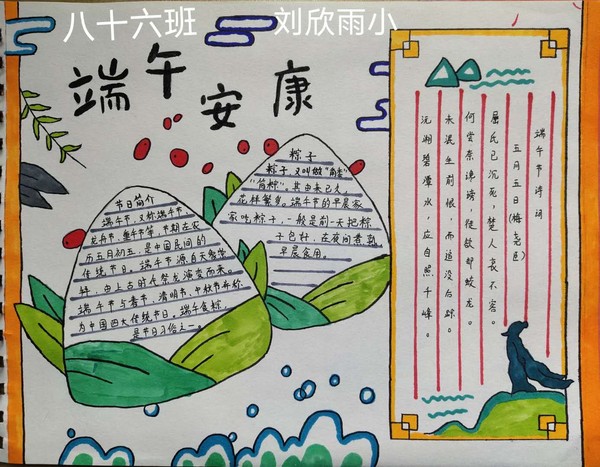 八十六班 刘欣雨小
端午安康
节日简介
端午节，又称端午节，
龙舟节，重午节等，节期在农
历五月初五，是中国民间的
传统节日。端午节源自天象崇
拜，由上古时代祭龙演变而来。
端午节与春节、清明节、中秋节并称
为中国四大传统节日。端午食粽，
是节日习俗之一。
粽子
粽子又叫做“角黍”
“筒粽”，其由来已久，
花样繁多。端午节的早晨家
家吃粽子，一般是前一天把粽
子包好，在夜间煮熟，
早晨食用。
端午节诗词
五月五日(梅尧臣)
屈氏已沉死，楚人哀不容。
何尝奈谗谤，徒欲却蛟龙。
未泯生前恨，而追没后踪。
沅湘碧潭水，应自照千峰。